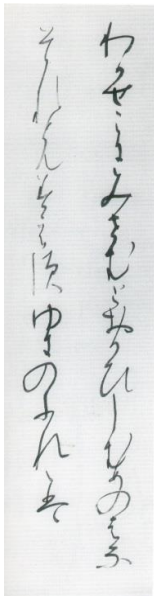 わかせこにみせむとおもひしむめのはな
それともみえすゆきのふれれは